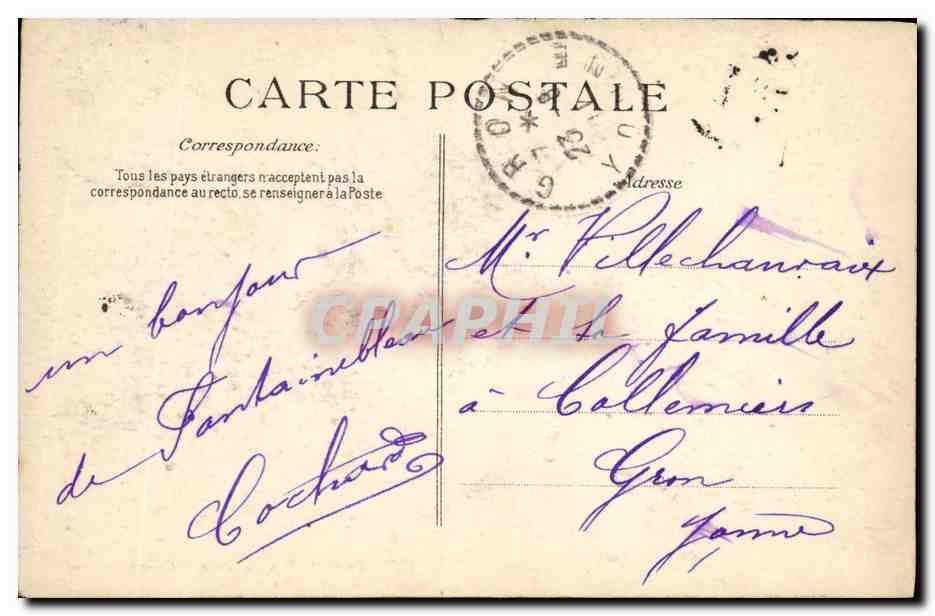 CARTE POSTALE
Correspondance:
Tous les pays étrangers n'acceptent pas la
correspondance au recto, se renseigner à la Poste
un bonjour
de Fontainebleau
Cochard
GRON
23
Adresse
Mr Villechanvaix
et sa famille
à Collemiers
Gron
Yonne
CPAPHIL